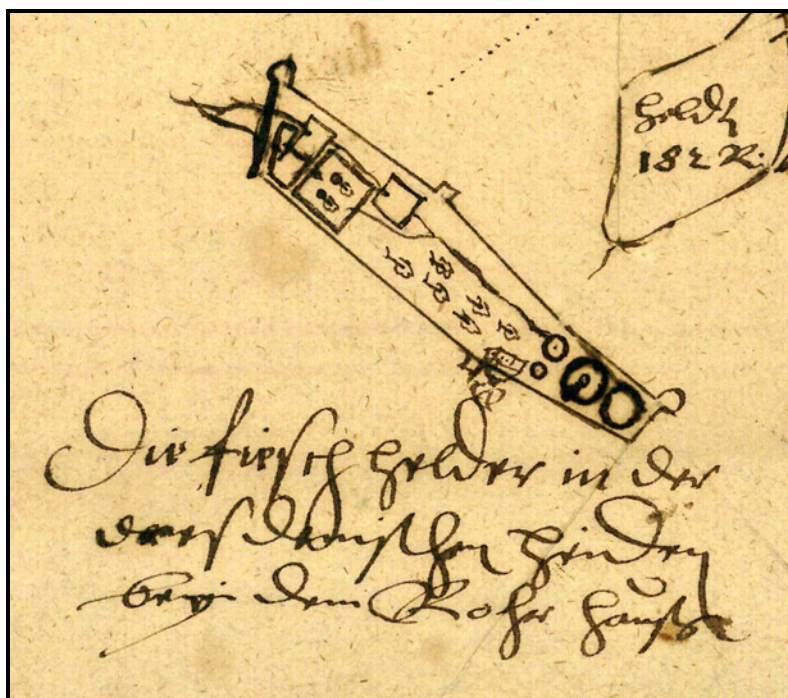 heldt
182 R:
Die fiesch helder in der
dresdenischen heiden
bey dem Rohr hauß